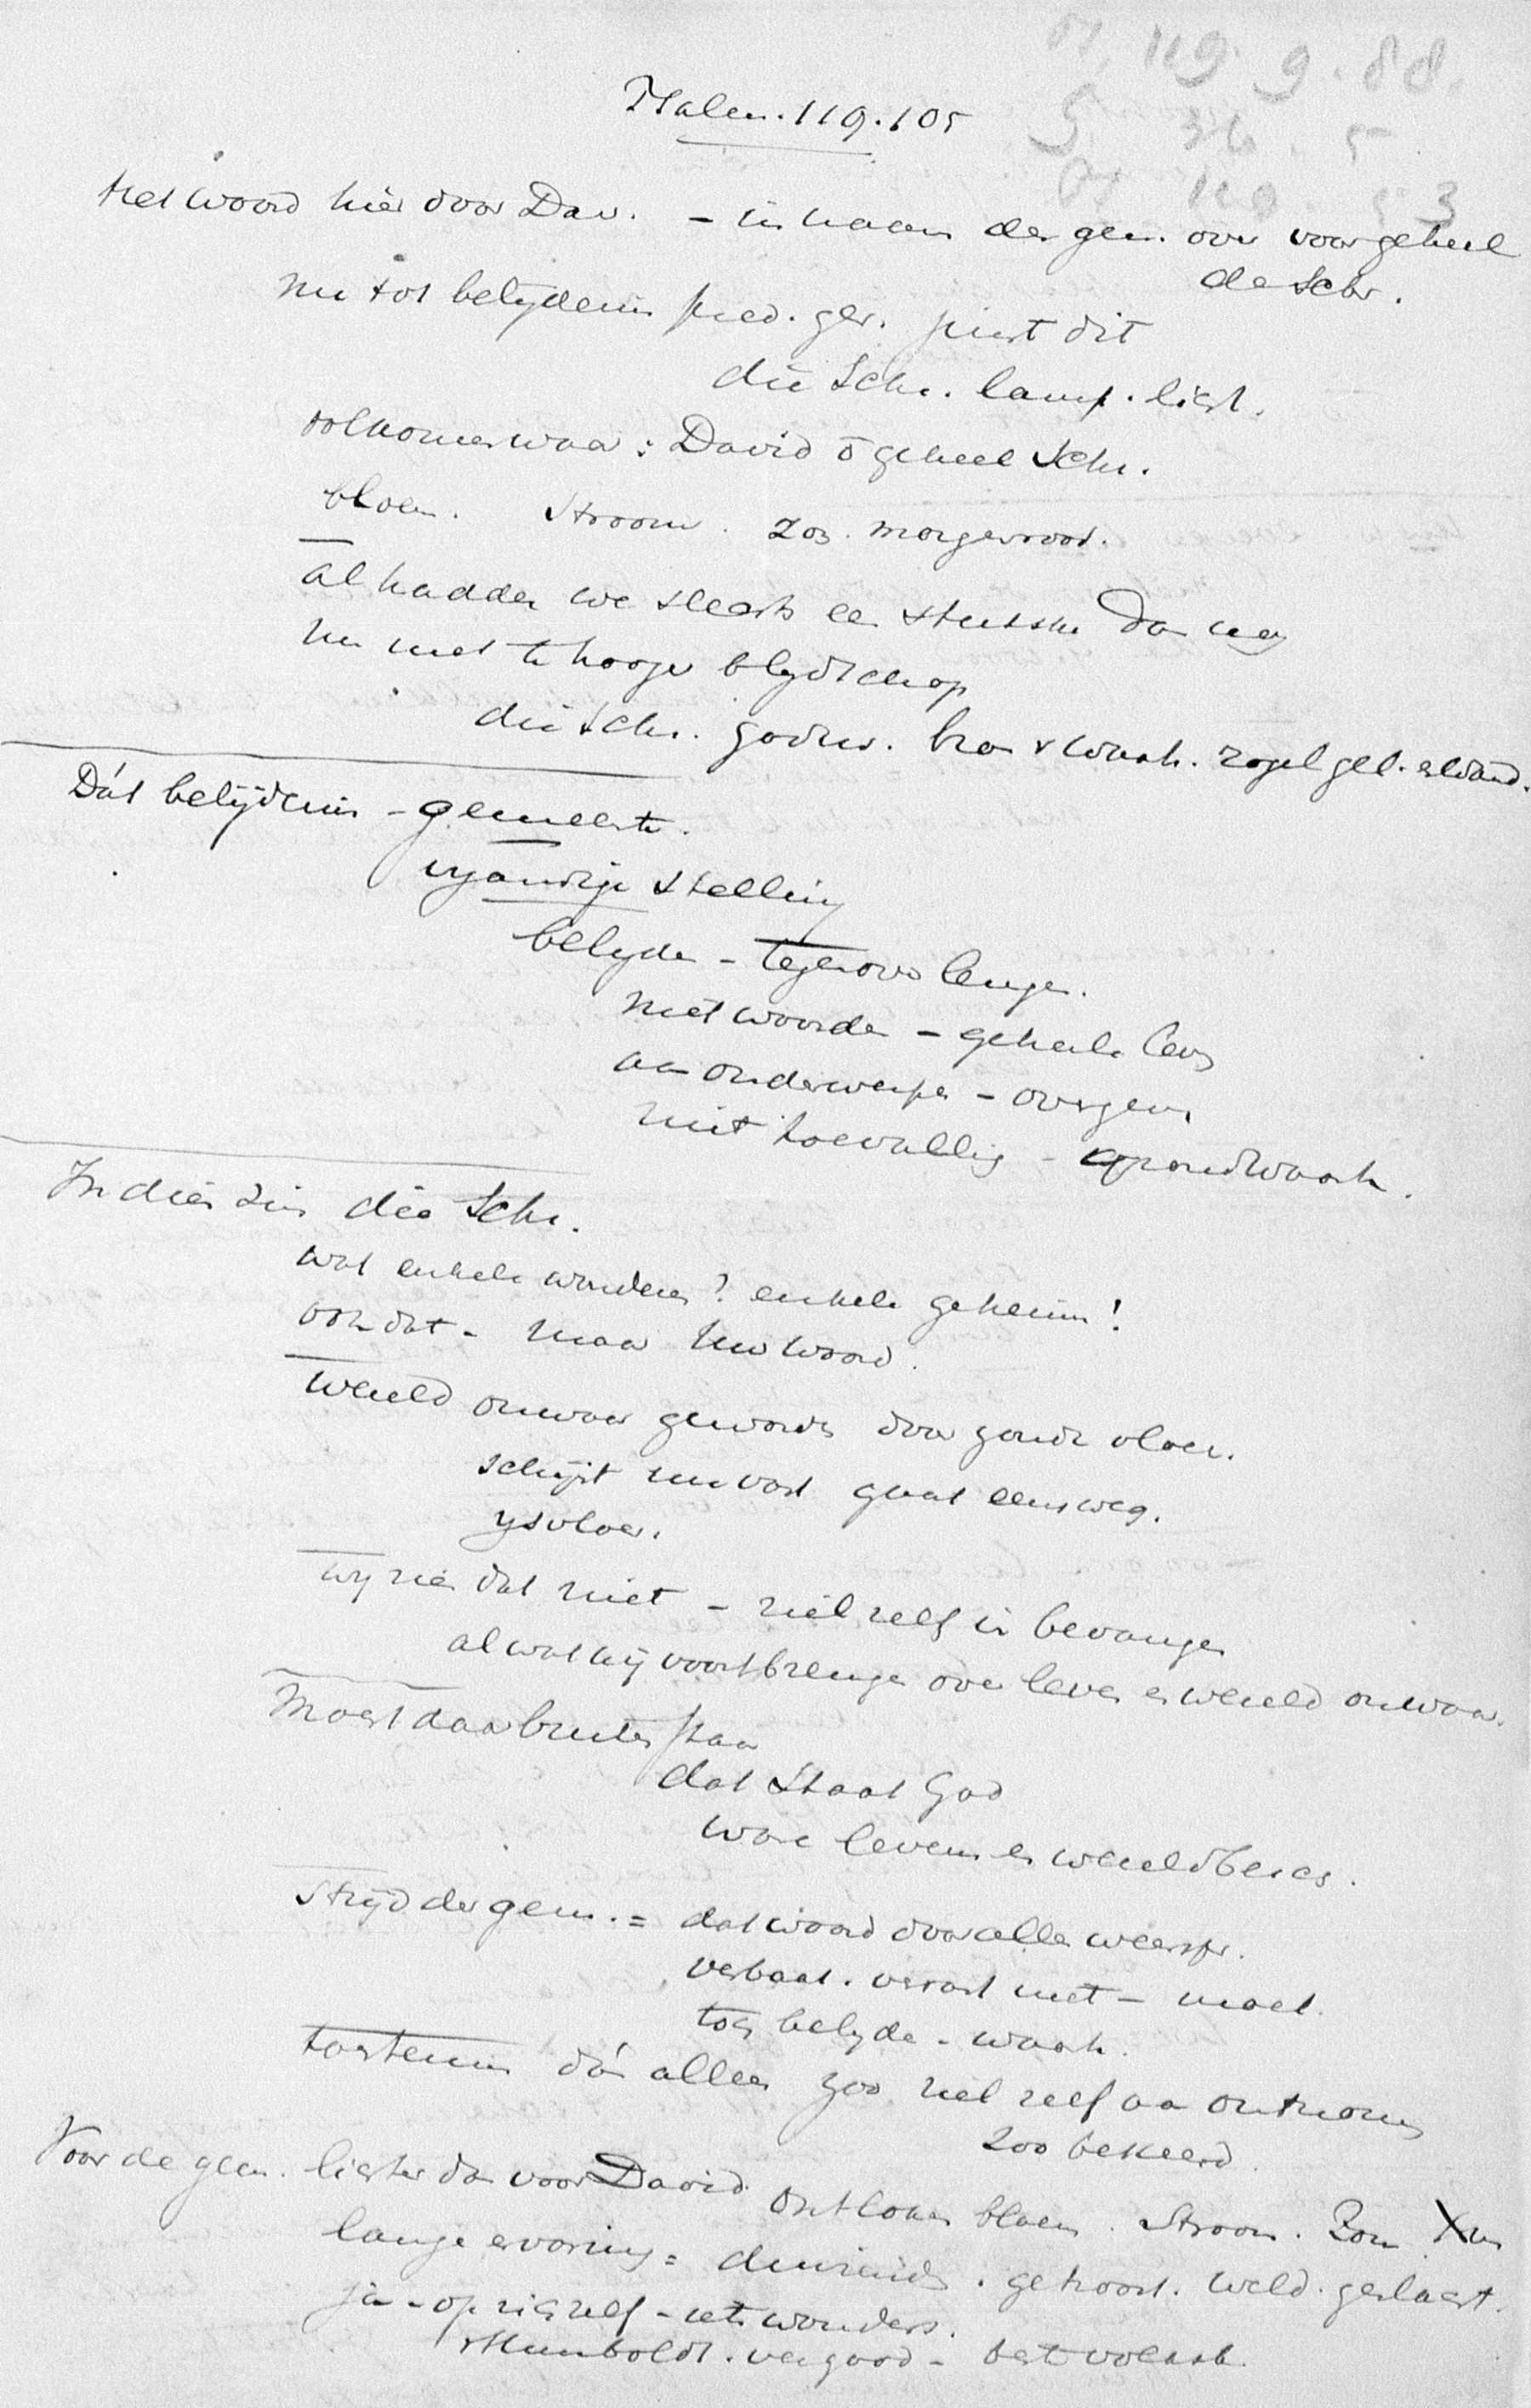 Ps 119. 9. 88.
5 36. 5
Ps 119. 53
Psalm. 119.105
Het woord hier door Dav. - in naam der gem. over voor geheel
de Schr.
nu tot belydenis pred. ger. juist dit
die Schr. lamp. licht.
volkomen waar: David ō geheel Schr.
bloem. Stroom. zon. morgenrood.
al hadden we slechts een stukske dan nog
nu met te hooger blydschap
die Schr. godes. bron v waarh. regel gel. en wand.
Dát belijdenis - gemeente.
vyandige stelling
belyden - tegenover leugen.
niet woorden - geheele leven
aan onderwerpen - overgeven
niet toevallig - grondwaarh.
In dien zin die Schr.
wat enkele wonderen? enkele geheim!
ook dat - maar Uw woord.
wereld onwaar geworden door zonde vloek.
schijnt nu vast gaat eens weg.
ysvloer.
wy zien dat niet - ziel zelf in bevangen
al wat wij voortbrengen over leven en wereld onwaar.
Moest daarbuiten staan
dat Staat God
ware levens en wereldbesch.
Strijd der gem. = dat woord door alle weerspr.
verbaast. verrast niet - moet.
toch belyden - waarh.
toestemmen dán alleen zoo ziel zelf aan ontkomen
zoo bekeerd.
Voor de gem. lichter dan voor David ontloken bloem. Stroom. Zon Xus
lange ervaring = duizenden. getroost. weld. geslacht.
ja - op zich zelf - iets wonders.
v Humboldt. vergood - best volksb.